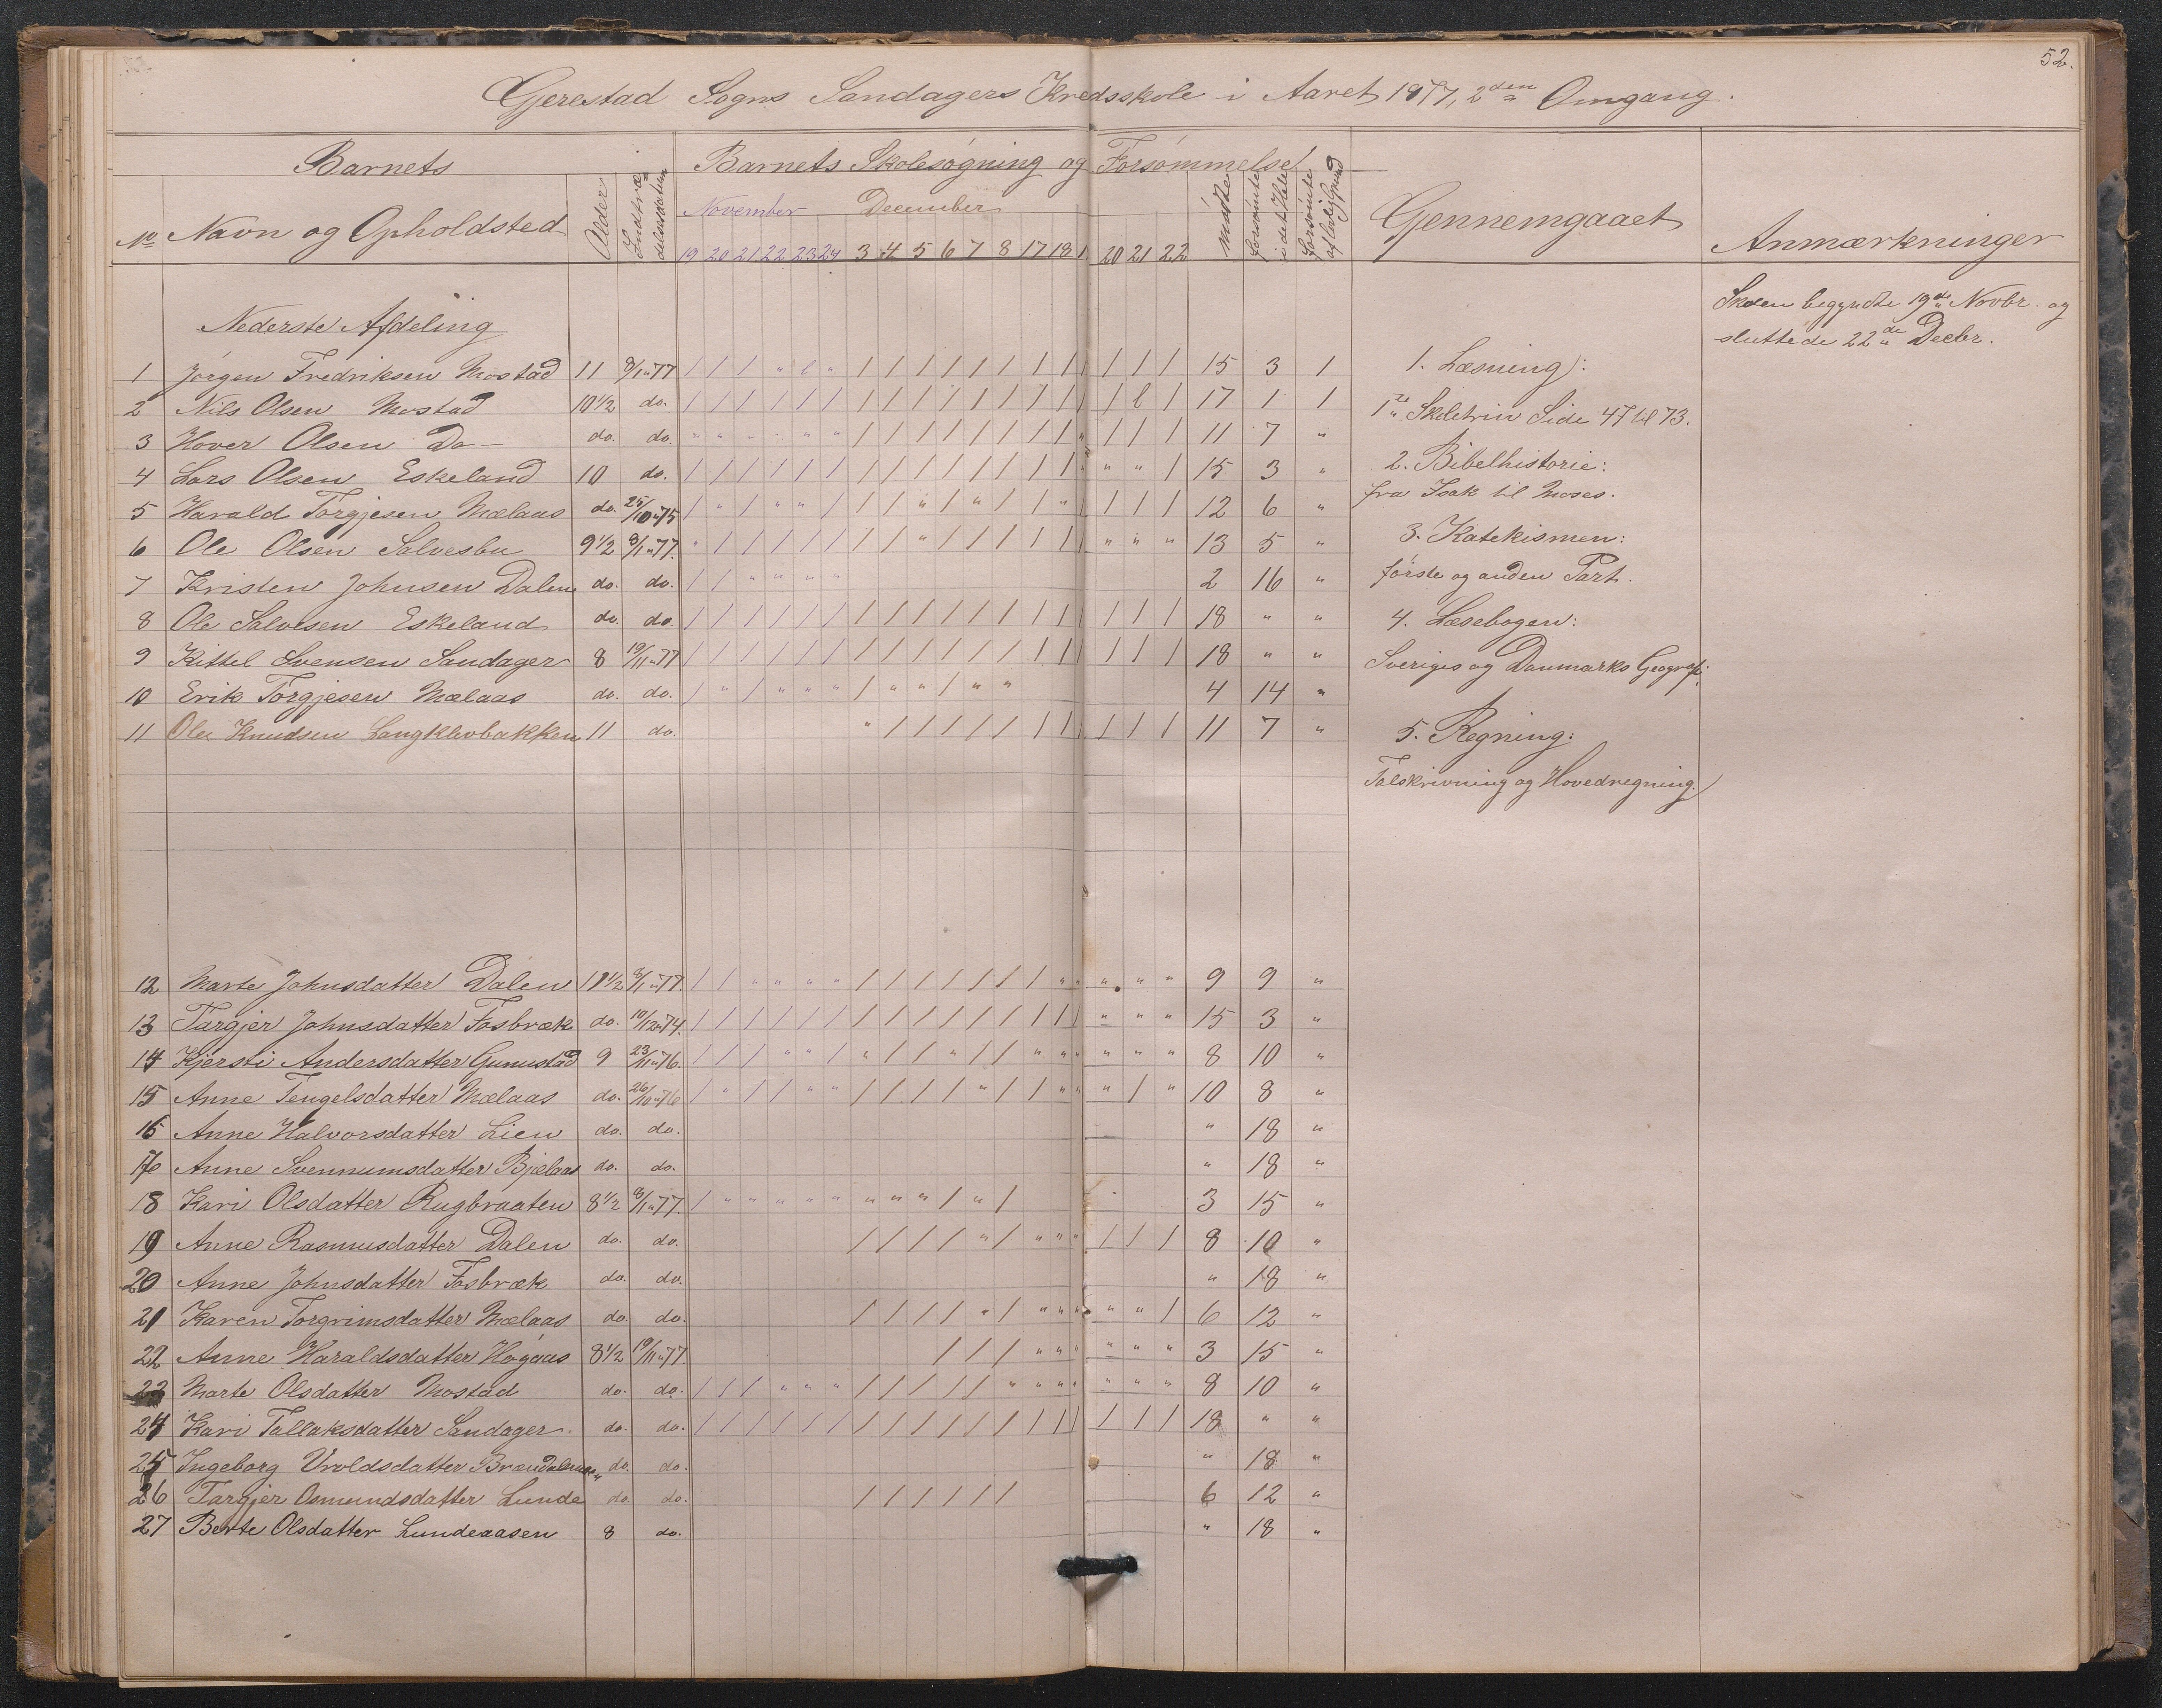 52.
Gjerestad Sogns Sandagers Kredsskole i Aaret 1877, 2den Omgang.
Barnets Barnets Skolesøgning og Forsømmelse
No Navn og Opholdsted Alder Indtrædelsesdatum November December mødte forsømte i det Hele forsømte af lovlig Grund Gjennemgaaet Anmærkninger
19 20 21 22 23 24 3 4 5 6 7 8 17 18 1 20 21 22
Skolen begyndte 19de Novbr. og
sluttede 22de Decbr.
Nederste Afdeling
1 Jørgen Fredriksen Mostad 11 8/1 77 / / / " l " / / / / / / / / / / / / 15 3 1
2 Nils Olsen Mostad 10 1/2 do. / / / / / / / / / / / / / / / / l / 17 1 1
3 Hover Olsen Do do. do. " " " " " " / / / / / / / / " / / / 11 7 "
4 Lars Olsen Eskeland 10 do. / / / / / / / / / / / / / / " " / 15 3 "
5 Harald Torgjesen Mælaas do. 25/10 75 / " / " " / / / " / " / / " / / / / 12 6 "
6 Ole Olsen Salvesbu 9 1/2 8/1 77. " / / / / / / / " / / / / / / " " " 13 5 "
7 Kristen Johnsen Dalen do. do. / / " " " " 2 16 "
8 Ole Salvesen Eskeland do. do. / / / / / / / / / / / / / / / / / / 18 " "
9 Kittel Svensen Sandager 8 19/11 77 / / / / / / / / / / / / / / / / / / 18 " "
10 Erik Torgjesen Mælaas do. do. / " / " " " / " " / " " 4 14 "
11 Ole Knudsen Langklevbakken 11 do. " / / / / / / / / / / / 11 7 "
1. Læsning:
1te Skoletrin Side 47 til 73.
2. Bibelhistorie:
fra Isak til Moses.
3. Katekismen:
første og anden Part.
4. Læsebogen:
Sveriges og Danmarks Geografi.
5. Regning:
Talskrivning og Hovedregning.
12 Marte Johnsdatter Dalen 11 1/2 8/1 77. / / " " " " / / / / / / / " " " " " 9 9 "
13 Targjer Johnsdatter Fosbræk do. 10/12 74. / / / / / / / / / / / / / / / " " " 15 3 "
14 Kjersti Andersdatter Gunustad 9 23/11 76. / / / " " / " / / " / / " " " " " " 8 10 "
15 Anne Tengelsdatter Mælaas do. 26/10 76 / " / / " " / / / / " / / " " " / " 10 8 "
16 Anne Halvorsdatter Lien do. do. " 18 "
17 Anne Svennumsdatter Bjælaas do. do. " 18 "
18 Kari Olsdatter Rugbraaten 8 1/2 8/1 77. / " " " " " " " " / " / 3 15 "
19 Anne Rasmusdatter Dalen do. do. / / / / " / " " " / / / 8 10 "
20 Anne Johnsdatter Fosbræk do. do. " 18 "
21 Karen Torgrimsdatter Mælaas do. do. / / / / " / " " " " " / 6 12 "
22 Anne Haraldsdatter Høgaas 8 1/2 19/11 77. / / / " " " " " " 3 15 "
23 Marte Olsdatter Mostad do. do. / / / " " " / / / / / " " " " " " " 8 10 "
24 Kari Tallaksdatter Sandager do. do. / / / / / / / / / / / / / / / / / / 18 " "
25 Ingeborg Uroldsdatter do. do. " 18 "
26 Targjer Osmundsdatter Lunde do. do. / / / / / / 6 12 "
27 Berte Olsdatter Lundeaasen 8 do. " 18 "